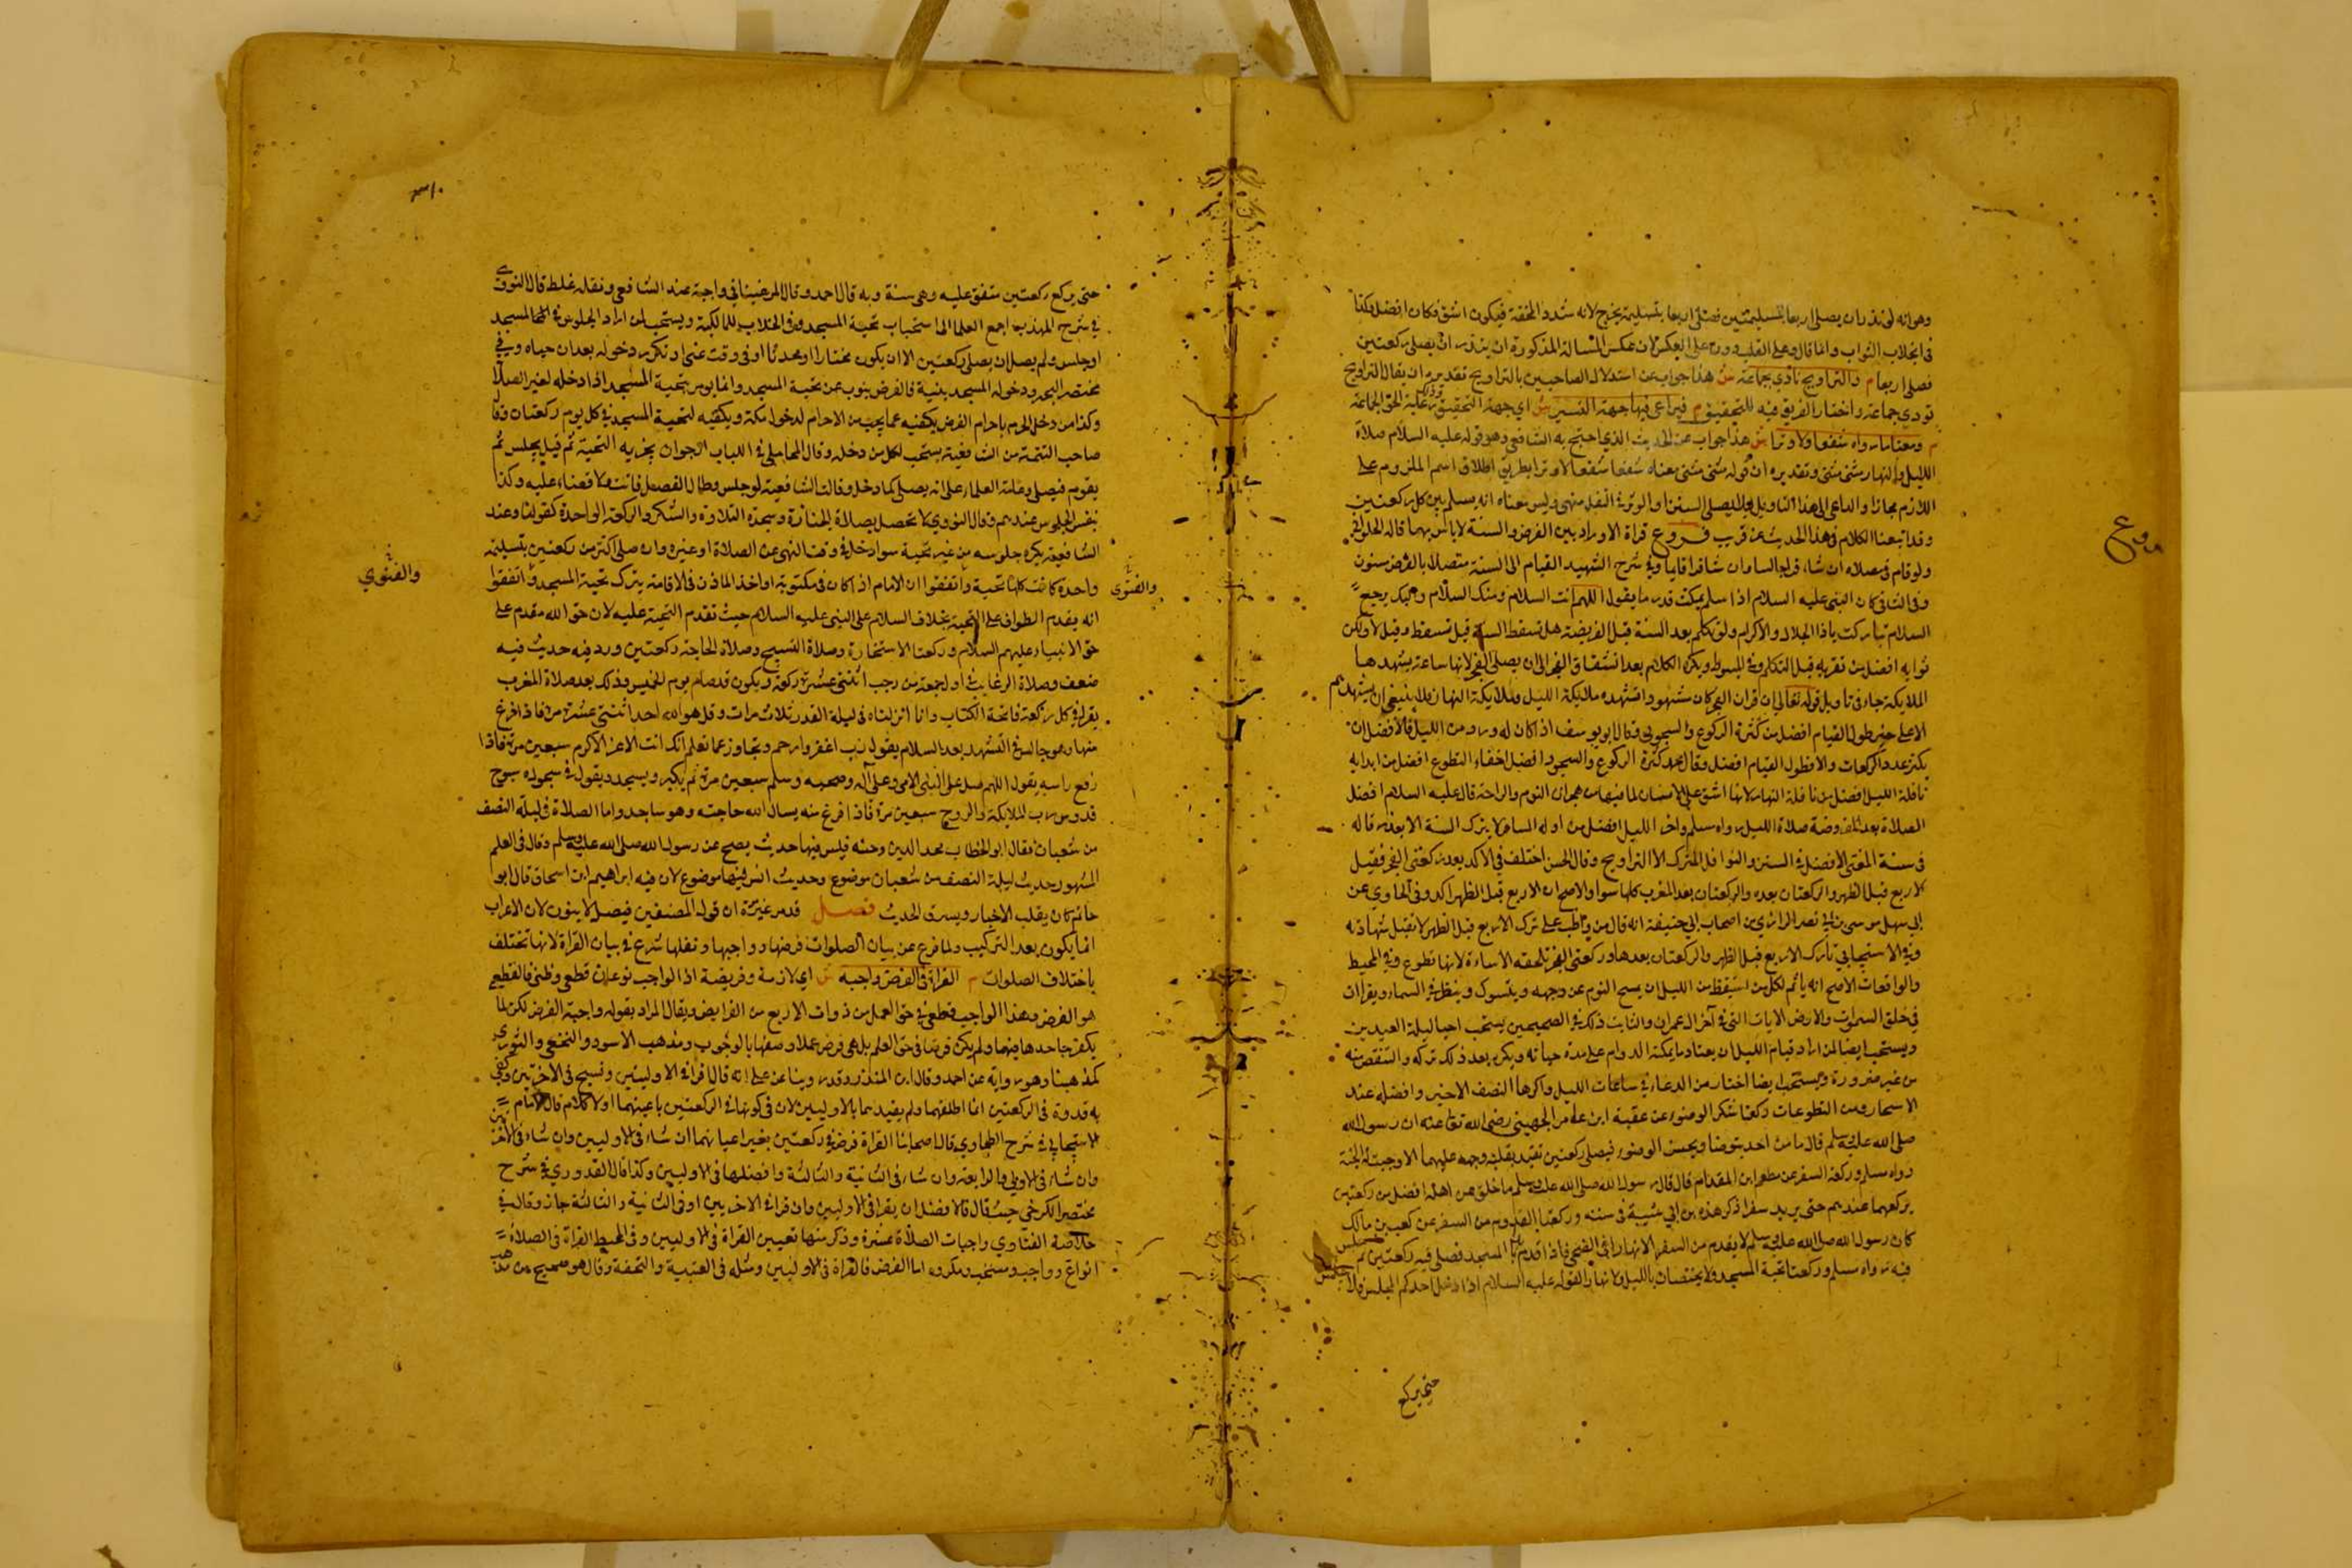 وهو انه لو نذر ان يصلي اربعا بتسليمتين فصلى اربعا بتسليمة يخرج لانه شدد المخففة فيكون اشق فكان افضل وكذا
في انجلاب الثواب وانما قال وعلى القلب دون على العكس لان عكس المسالة المذكورة ان ينذر ان يصلي ركعتين
فصلى اربعا م والتراويح تادي بجماعة ش هذا جواب عن استدلال الصاحبين بالتراويح تقديره ان يقال التراويح
تودي بجماعة واختار الفريق فيه للتحقيق م فيراعى فيها جهة التيسير ش اي جهة التحقيق رعاية لحق الجماعة
م ومعنى ما رواه شفعا لا وترا ش هذا جواب عن الحديث الذي احتج به الشافعي وهو قوله عليه السلام صلاة
الليل والنهار مثنى مثنى وتقديره ان قوله مثنى مثنى معناه شفعا شفعا لا وترا بطريق اطلاق اسم الملزوم على
اللازم مجازا والداعي الى هذا التاويل انه ليس معناه انه يسلم بين كل ركعتين
وقد اتبعنا الكلام في هذا الحديث عن قريب فروع قراة الاوراد بين الفرض والسنة لا باس بها قاله الحلواني
ولو قام في مصلاه ان شاء قرا جالسا وان شا قرا قايما وفي شرح الشهيد القيام الى السنة متصلا بالفرض مسنون
وفي الشافي كان النبي عليه السلام اذا سلم يمكث قدر ما يقول اللهم انت السلام ومنك السلام واليك يرجع
السلام تباركت ياذا الجلال والاكرام ولو تكلم بعد السنة قبل الفريضة هل تسقط السنة قيل تسقط وقيل لا ولكن
ثوابه افضل من ثوابه قبل التكلم وفي المبسوط ويكره الكلام بعد انشقاق الفجر الى ان يصلي الفجر لانها ساعة يشهدها
الملايكة جاء في تاويل قوله تعالى ان قران الفجر كان مشهودا تشهده ملايكة الليل وملايكة النهار فلا ينبغي ان يشهدهم
الا على خير طول القيام افضل من كثرة الركوع والسجود وقال ابو يوسف اذا كان له ورد من الليل فالافضل ان
يكثر عدد الركعات والا فطول القيام افضل وقال محمد كثرة الركوع والسجود افضل اخفاء التطوع افضل من ابدايه
نافلة الليل افضل من نافلة النهار لانها اشق على الانسان لما فيها من هجران النوم والراحة قال عليه السلام افضل
الصلاة بعد المفروضة صلاة الليل رواه مسلم واخر الليل افضل من اوله المسافر لا يترك السنة الا بعذر قاله
في سنة المفتي الافضل في السنن والنوافل المنزل الا التراويح وقال الحسن اختلف في الاكد بعد ركعتي الفجر فقيل
الاربع قبل الظهر والركعتان بعده والركعتان بعد المغرب كلها سوا والاصح ان الاربع قبل الظهر اكد وفي الحاوي عن
ابي سهل موسى بن نصر الرازي من اصحاب ابي حنيفة انه قال من واظب على ترك الاربع قبل الظهر لا تقبل شهادته
وفي الاسبيجابي تارك الاربع قبل الظهر والركعتان بعدها وركعتي الفجر تلحقه الاساءة لانها تطوع وفي المحيط
والواقعات الاصح انه ياثم لكل من استيقظ من الليل ان يمسح النوم عن وجهه ويتسوك وينظر في السماء ويقرا ان
في خلق السموات والارض الايات التي في آخر ال عمران والثابت ذلك في الصحيحين يستحب احيا ليلة العيدين
ويستحب ايضا لمن اراد قيام الليل ان يعتاد ما يمكنه الدوام عليه مدة حياته ويكره بعد ذلك تركه والنقص منه
من غير ضرورة ويستحب ايضا اختار من الدعاء في ساعات الليل واكدها النصف الاخير وافضله عند
الاسحار ومن التطوعات ركعتا شكر الوضوء عن عقبة ابن عامر الجهني رضي الله تعا عنه ان رسول الله
صلى الله عليه وسلم قال ما من احد يتوضا ويحسن الوضوء فيصلي ركعتين تقبل بقلبه ووجهه عليهما الا وجبت له الجنة
رواه مسلم وركعة السفر عن مطعم ابن المقدام قال قال رسول الله صلى الله عليه وسلم ما خلف من اهله افضل من ركعتين
يركعهما عندهم حتى يريد سفرا ذكر هذه بن ابي شيبة في سننه وركعتا القدوم من السفر عن كعب بن مالك
كان رسول الله صلى الله عليه وسلم لا يقدم من السفر الا نهارا في الضحى فاذا قدم بدا بالمسجد فصلى فيه ركعتين ثم جلس
فيه رواه مسلم وركعتا تحية المسجد ولا يختصان بالليل ولا نهار القوله عليه السلام اذا دخل احدكم المجلس فلا يجلس
حتى يركع
فروع
حتى يركع ركعتين متفق عليه وهي سنة وبه قال احمد وقال المرغيناني واجبة عند الشافعي ونقله غلط قال النووي
في شرح المهذب اجمع العلما الى استحباب تحية المسجد وفي الجلاب للمالكية ويستحب لمن اراد الجلوس في المسجد
او جلس ولم يصل ان يصلي ركعتين الا ان يكون مختارا او محدثا او في وقت نهى او تكرر دخوله بعد ان حياه وفي
مختصر البحر ودخوله المسجد بنية فالفرض ينوب عن تحية المسجد وانما يومر بتحية المسجد اذا دخله لغير الصلاة
وكذا من دخل الحرم باحرام الفرض يكفيه عما يجب من الاحرام لدخول مكة ويكفيه لتحية المسجد في كل يوم ركعتان وقال
صاحب التتمة من الشافعية يستحب لكل من دخله وقال المحاملي في اللباب الجواز يجزيه التحية ثم قيل يجلس ثم
يقوم فيصلي وعامة العلماء على انه يصلي كما دخل وقالت الشافعية لو جلس وطال الفصل فاتت ولا قضاء عليه وكذا
بنفس الجلوس عندهم وقال النووي لا تحصل بصلاة الجنازة وسجدة التلاوة والشكر والركعة الواحدة كقولنا وعند
الشافعية يكره جلوسه من غير تحية سوا دخل في وقت النهي عن الصلاة او غيره وان صلى اكثر من ركعتين بتسليمة
واحدة كانت كلها تحية واتفقوا ان الامام اذا كان في مكتوبة او اخذ الماذن في الاقامة يترك تحية المسجد واتفقوا
انه يقدم الطواف على التحية بخلاف السلام على النبي عليه السلام حيث تقدم التحية عليه لان حق الله مقدم على
حق الانبياء عليهم السلام وركعتا الاستخارة وصلاة التسبيح وصلاة الحاجة ركعتين ورد فيه حديث فيه
ضعف وصلاة الرغايب في اول جمعة من رجب اثنتي عشرة ركعة ويكون قد صام يوم الخميس وذلك بعد صلاة المغرب
يقرا في كل ركعة فاتحة الكتاب وانا انزلناه في ليلة القدر ثلاث مرات وقل هو الله احد اثنتي عشرة مرة فاذا فرغ
منها وهو جالس في التشهد بعد السلام يقول رب اغفر وارحم وتجاوز عما تعلم انك انت الاعز الاكرم سبعين مرة فاذا
رفع راسه يقول اللهم صل على النبي الامي وعلى آله وصحبه وسلم سبعين مرة ثم يكبر ويسجد ويقول في سجوده سبوح
قدوس رب الملايكة والروح سبعين مرة فاذا فرغ منه يسال الله حاجته وهو ساجد واما الصلاة في ليلة النصف
من شعبان فقال ابو الخطاب مجد الدين وحنه فليس فيها حديث يصح عن رسول الله صلى الله عليه وسلم وقال في العلم
المشهور حديث ليلة النصف من شعبان موضوع وحديث انس فيها موضوع لان فيه ابراهيم ابن اسحاق قال ابو
حاتم كان يقلب الاخبار ويسرق الحديث فصل قد مر غير مرة ان قول المصنفين فصل لا ينون لان الاعراب
انما يكون بعد التركيب ولما فرغ عن بيان الصلوات فرضها وواجبها ونفلها شرع في بيان القراة لانها تختلف
باختلاف الصلوات م القراة في الفرض واجبة ش اي لازمة وفريضة اذ الواجب نوعان قطعي وظني فالقطعي
هو الفرض وهذا الواجب قطعي في حق العمل من ذوات الاربع من الفرايض ويقال المراد بقوله واجبة الفرض لكن لما
يكفر جاحدها فيها ولم يكن فرضا في حق العلم بل هي فرض عملا وصفها بالوجوب ومذهب الاسود والنخعي والثوري
كمذهبنا وهو رواية عن احمد وقال ابن المنذر وقد روينا عن علي انه قال اقرا في الاوليين وسبح في الاخريين وكفى
به قدوة في الركعتين انما اطلقهما ولم يقيدهما بالاوليين لان في كونها في الركعتين باعينهما اولا كلام قال الامام
الاسبيجابي في شرح الطحاوي قال اصحابنا القراة فرض في ركعتين بغير اعيانهما ان شاء في الاوليين وان شاء في الاخريين
وان شاء في الاولى والرابعة وان شاء في الثانية والثالثة وافضلها في الاوليين وكذا قال القدوري في شرح
مختصر الكرخي حيث قال فالافضل ان يقرا في الاوليين وان قرا في الاخريين او في الثانية والثالثة جاز وقال في
خلاصة الفتاوي واجبات الصلاة عشرة وذكر منها تعيين القراة في الاوليين وفي المحيط القراة في الصلاة
انواع وواجب ومستحب ومكروه اما الفرض فالقراة في الاوليين ومثله في العتبية والتحفة وقال هو صحيح من مذهب
والغنوي